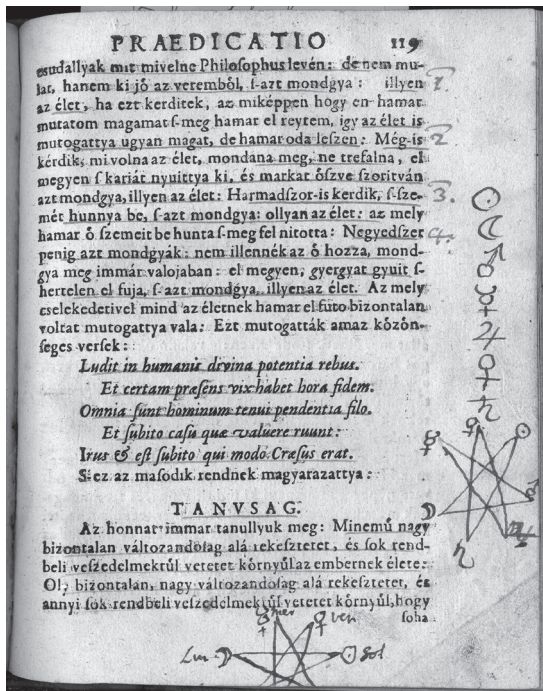 PRAEDICATIO 119
csudallyak mit mivelne Philosophus levén: de nem mu-
lat, hanem ki jó az veremből, s-azt mondgya: illyen
az élet, ha ezt kerditek, az miképpen hogy en hamar
mutatom magamat s-meg hamar el reytem, igy az élet is
mutogattya ugyan magat, de hamar oda leszen: Még-is
kérdik, mi volna az élet, mondana meg, ne trefalna, el
megyen s kariát nyuittya ki, és markat ószve szoritván
azt mondgya, illyen az élet: Harmadszor-is kerdik, s-sze-
mét hunnya be, s-azt mondgya: ollyan az élet: az mely
hamar ó szemeit be hunta s-meg fel nitotta: Negyedszer
penig azt mondgyák: nem illennék az ó hozza, mond-
gya meg immár valojaban: el megyen, gyergyat gyuit s-
hertelen el fuja, s-azt mondgya, illyen az élet. Az mely
cselekedetivel mind az életnek hamar el futo bizontalan
voltat mutogattya vala: Ezt mutogatták amaz kózón-
seges versek:
Ludit in humanis divina potentia rebus.
Et certam præsens vix habet hora fidem.
Omnia sunt hominum tenui pendentia filo.
Et subito casu quæ valuere ruunt:
Irus & est subito qui modo Cræsus erat.
S-ez az masodik rendnek magyarazattya:
TANVSAG.
Az honnat immar tanullyuk meg: Minemű nagy
bizontalan változandosag alá rekesztetet, és sok rend-
beli veszedelmektűl vetetet kórnyűl az embernek élete:
Ol, bizontalan, nagy változandosag alá rekesztetet, és
annyi sok rendbeli veszedelmektűl vetetet kórnyűl, hogy
soha
1.
2
3.
4.
☉
☾
♂
☿
♃
♀
♄
♀ ☉
☿
☽ ♂
♄ ♃
☿ mer ♀ ven
Lun ☽ ☉ Sol